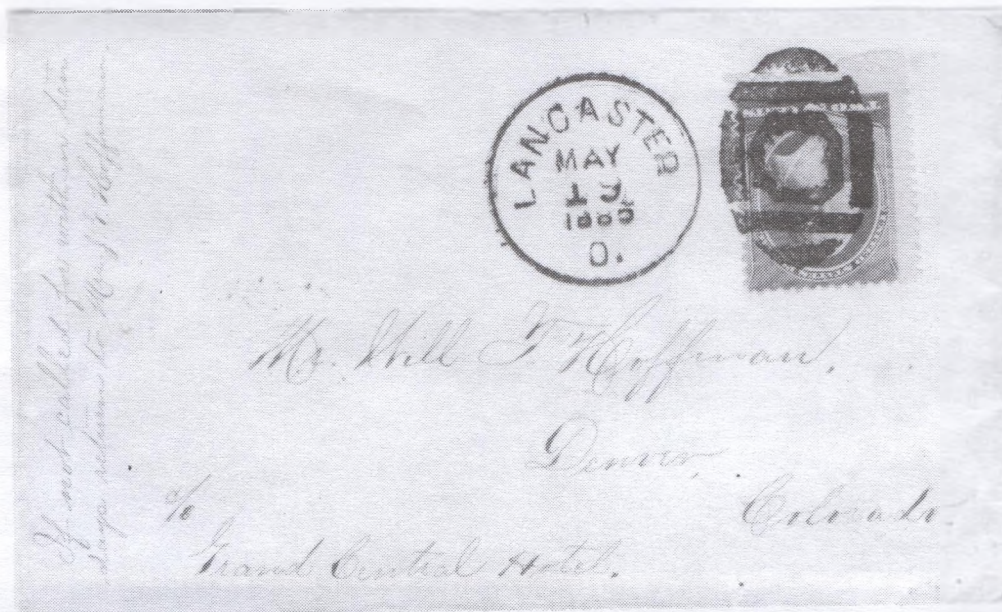 If not called for within ten
days return to Hoffman.
LANCASTER
MAY
13
O.
Mr. Will F Hoffman,
Denver,
Colorado.
c/o
Grand Central Hotel.